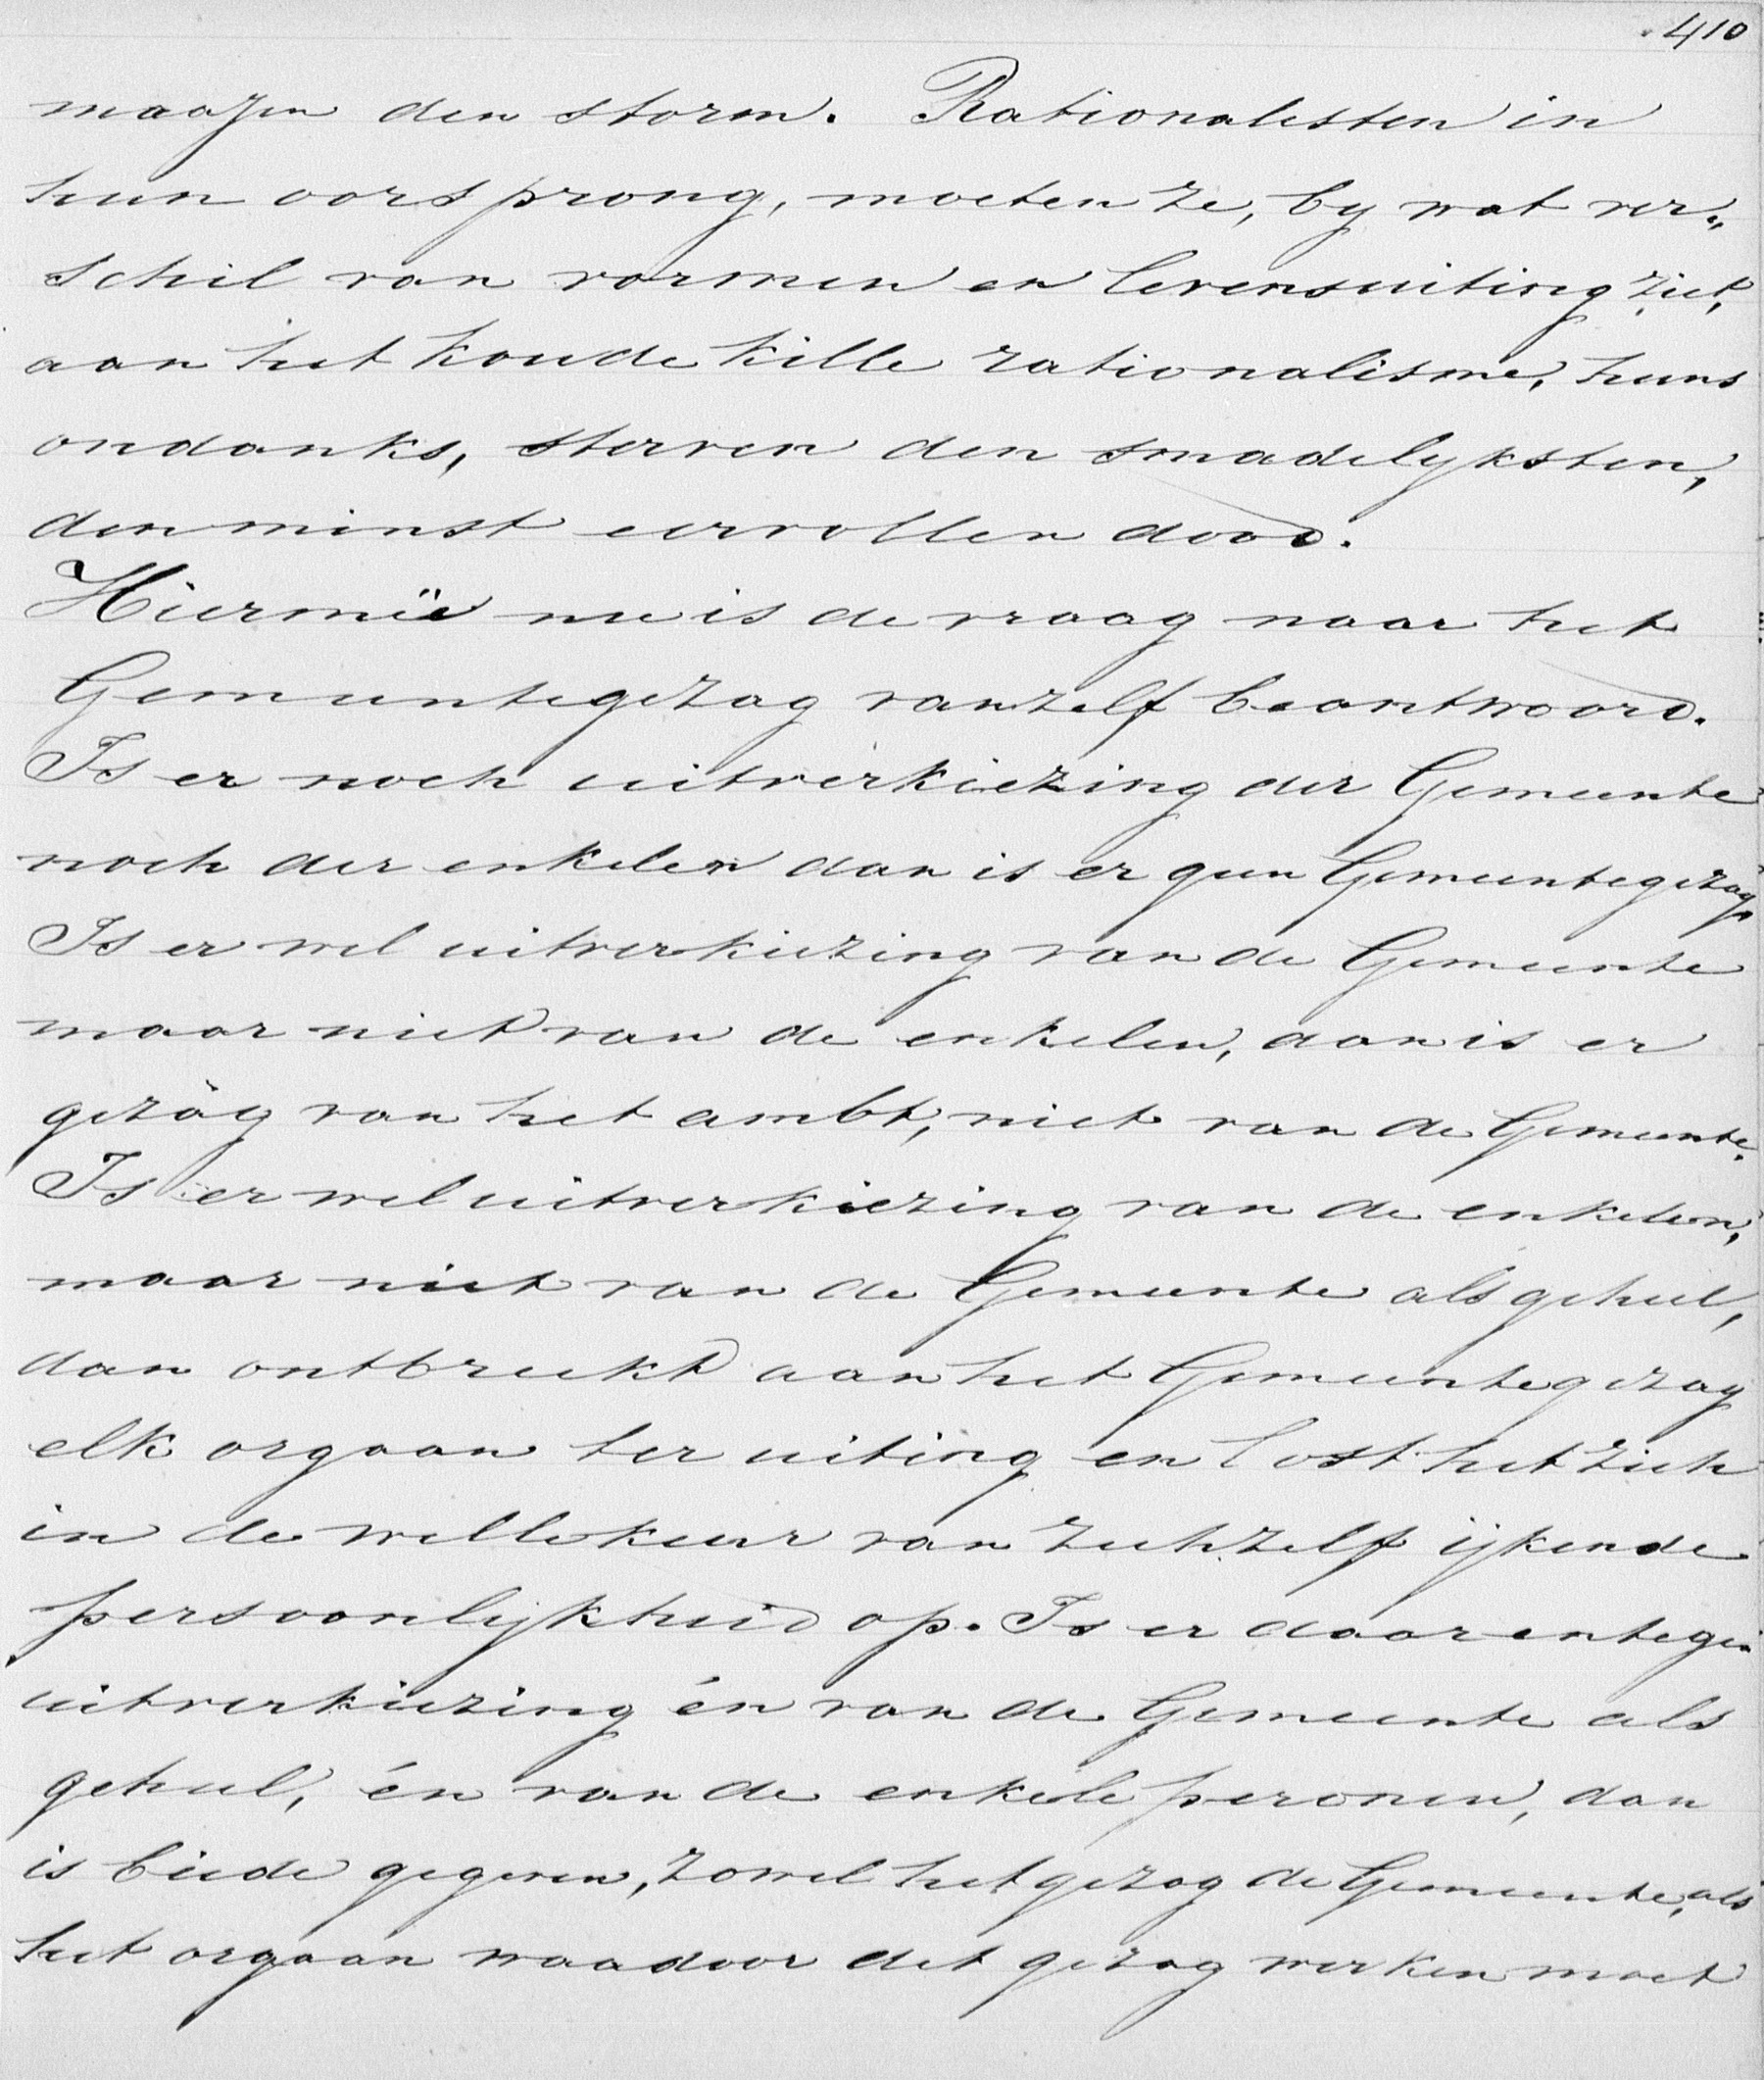 410
maajen den storm. Rationalisten in
hun oorsprong, moeten ze, by wat ver„
schil van vormen en levensuiting ziet,
aan het koude kille rationalisme, huns
ondanks, sterven den smadelyksten,
den minst eervollen dood.
Hiermeë nu is de vraag naar het
Gemeentegezag vanzelf beantwoord.
Is er noch uitverkiezing der Gemeente
noch der enkelen dan is er geen Gemeentegezag.
Is er wel uitverkiezing van de Gemeente
maar niet van de enkelen, dan is er
gezag van het ambt, niet van de Gemeente.
Is er wel uitverkiezing van de enkelen,
maar niet van de Gemeente als geheel,
dan ontbreekt aan het Gemeentegezag
elk orgaan ter uiting en lost het zich
in de willekeur van zichzelf ijkende
persoonlijkheid op. Is er daarentegen
uitverkiezing én van de Gemeente als
geheel, én van de enkele peronen, dan
is beide gegeven, zowel het gezag de Gemeente, als
het orgaan waadoor dit gezag werken moet